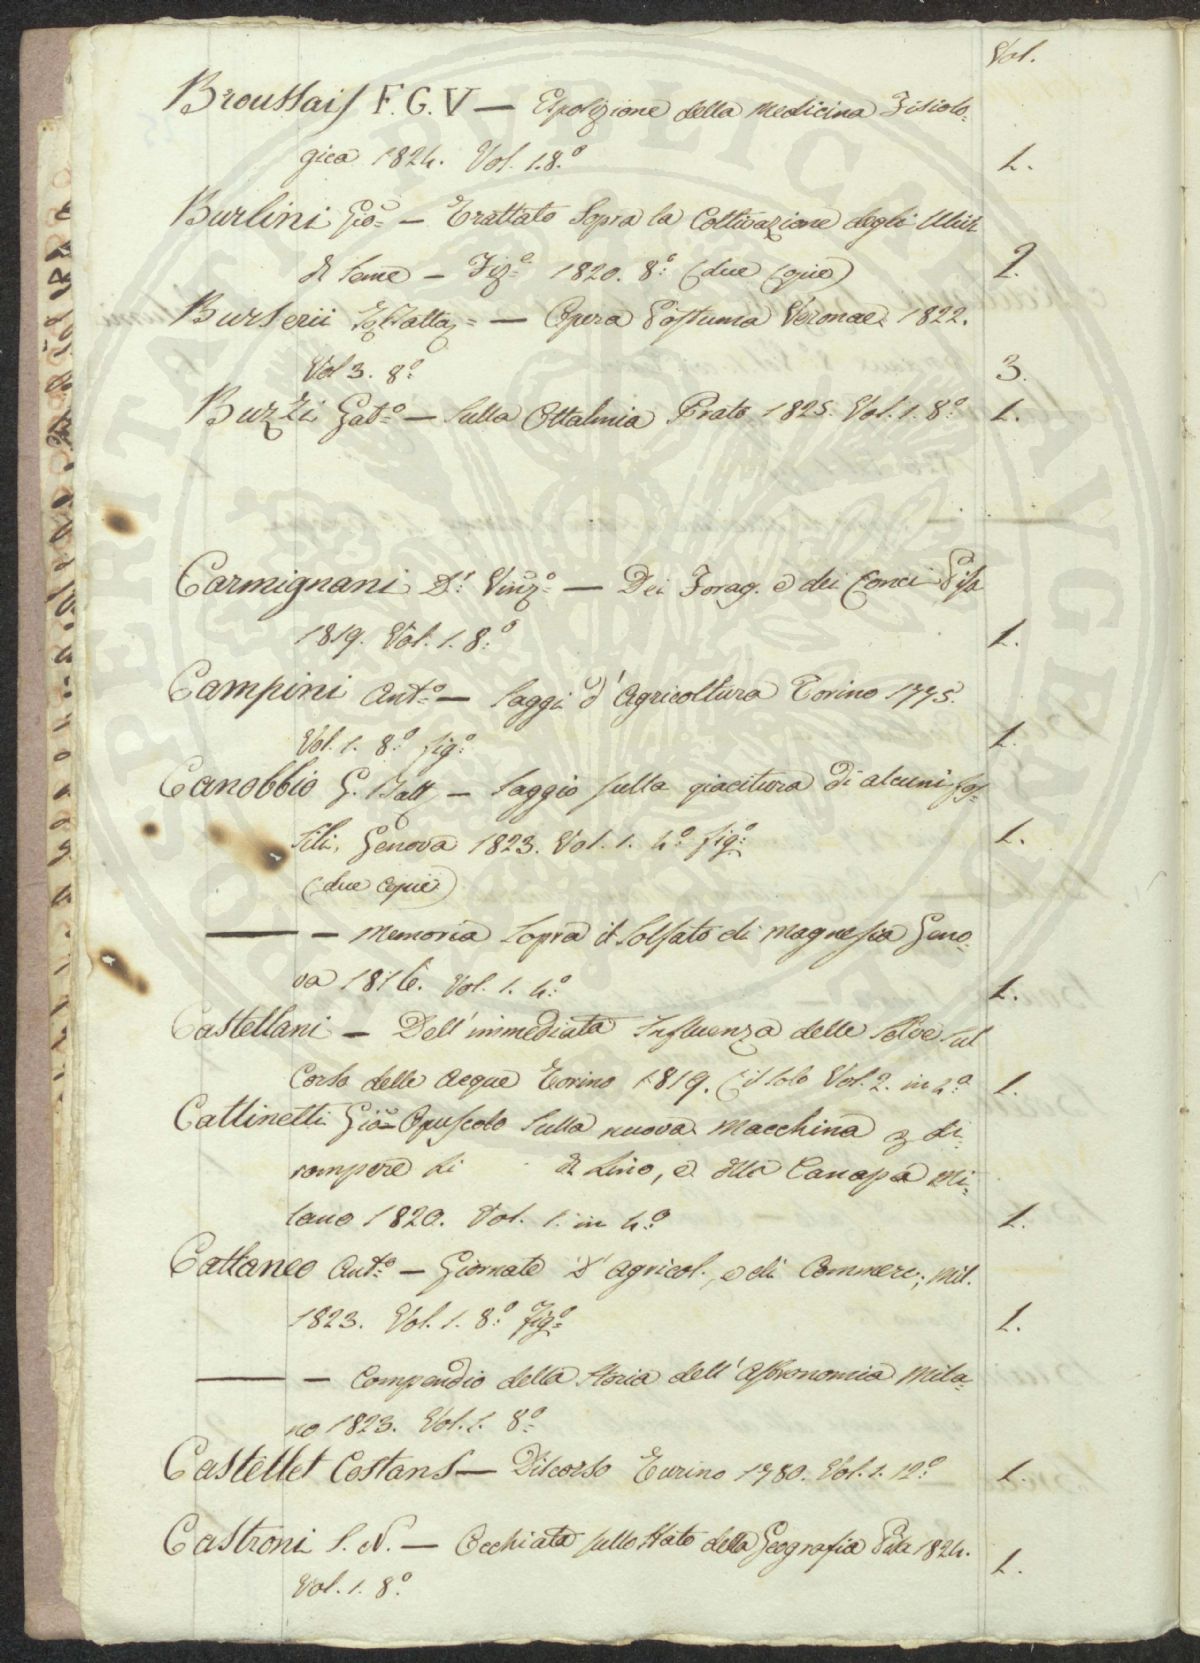 Vol.
Broussais F. G. V — Esposizione della Medicina Fisiolo-
gica 1824. Vol. 1. 8.º 1.
Burlini Gio: — Trattato Sopra la Coltivazione degli Ulivi
di Seme — Fig.º 1820. 8.º (due Copie) 2.
Burserii — Opera Postuma Veronae 1822.
Vol 3. 8.º 3.
Buzzi Gat.º — Sulla Ottalmia Prato 1825. Vol. 1. 8.º 1.
Carmignani D.r Vinz.º — Dei Forag. e dei Conci Pisa
1819. Vol. 1. 8.º 1.
Campini Ant.º — Saggi d'Agricoltura Torino 1775.
Vol. 1. 8.º fig.º 1.
Canobbio G. Batt — Saggio sulla giacitura di alcuni fos-
sili, Genova 1823. Vol. 1. 4.º fig.º 1.
(due copie)
— — Memoria Sopra il Solfato di Magnesia Geno-
va 1816. Vol. 1. 4.º 1.
Castellani — Dell'immediata Influenza delle Selve sul
Corso delle Acque Torino 1819. (il solo Vol. 2. in 4.º 1.
Cattinetti Gio: Opuscolo Sulla nuova Macchina di-
rompere di Lino, e della Canapa Mi-
lano 1820. Vol. 1. in 4.º 1.
Cattaneo Ant.º — Giornale d'Agricol., e di Commerc; Mil.
1823. Vol. 1. 8.º Fig.º 1.
— — Compendio della Storia dell'Astronomia Mila-
no 1823. Vol. 1. 8.º
Castellet Costans — Discorso Turino 1780. Vol. 1. 12.º 1.
Castroni S. N. — Occhiata sullo Stato della Geografia Pisa 1824. 1.
Vol. 1. 8.º